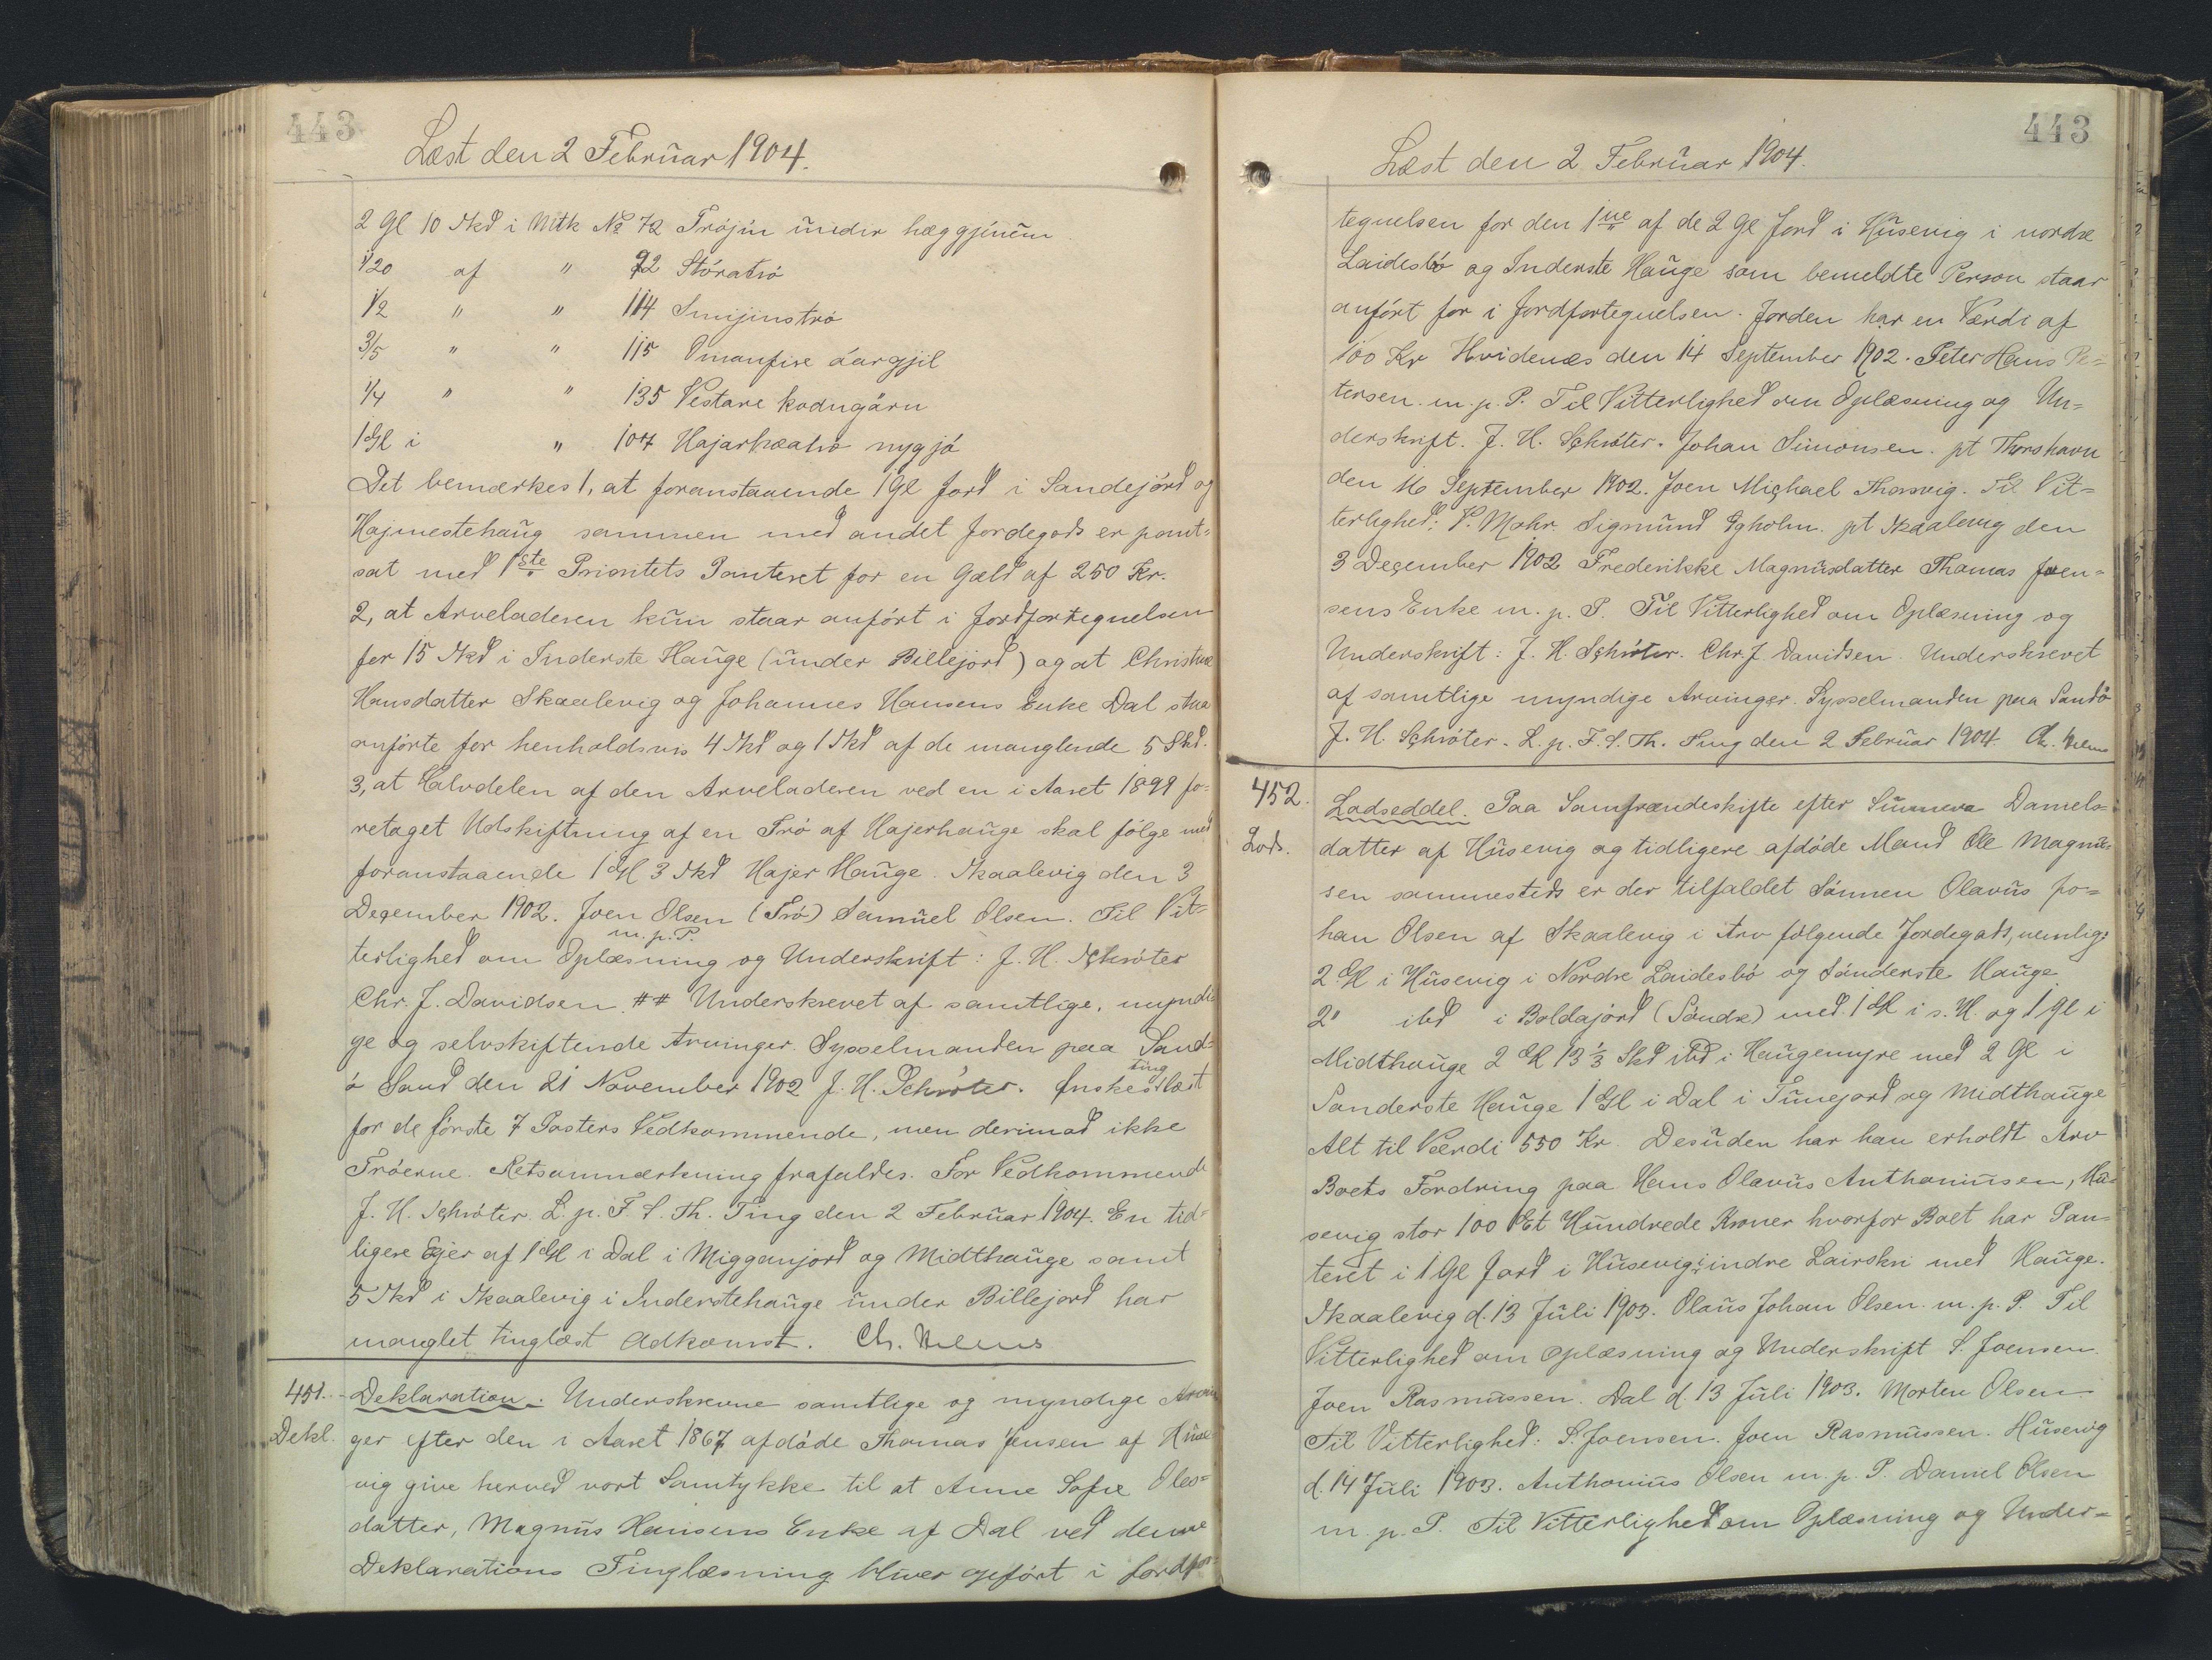 443
Læst den 2 Februar 1904.
2 Gl 10 Skd i Mtk No 72 Trøjin under hæggjinum
1/20 af " 92 Stóratrø
1/2 " " 114 Smijinstrø
3/5 " " 115 Omanfire áargjil
1/4 " " 135 Vestare kodngårn
1 Gl i " 107 Hajarhæatrø nyggjá
Det bemærkes 1, at foranstaaende 1 Gl Jord i Sandejórd og
Hajmestehaug sammen med andet Jordegods er pant-
sat med 1ste Prioritets Panteret for en Gæld af 250 Kr.
2, at Arveladeren kun staar anført i Jordfortegnelsen
for 15 Skd i Inderste Hauge (under Billejord) og at Christine
Hansdatter Skaalevig og Johannes Hansens Enke Dal staa
anførte for henholdsvis 4 Skd og 1 Skd af de manglende 5 Skd.
3, at Halvdelen af den Arveladeren ved en i Aaret 1899 fo-
retaget Udskiftning af en Trø af Hajerhauge skal følge med
foranstaaende 1 Gl 3 Skd Hajer Hauge. Skaalevig den 3
December 1902. Joen Olsen (Trø) Samuel Olsen. Til Vit-
m. p. P.
terlighed om Oplæsning og Underskrift: J. H. Schrøter
Chr. J. Davidsen. ## Underskrevet af samtlige, myndi
ge og selvskiftende Arvinger. Sysselmanden paa Sand-
ø Sand den 21 November 1902 J. H. Schrøter. Ønskes tinglæst
for de første 7 Posters Vedkommende, men derimod ikke
Trøerne. Retsanmærkning frafaldes. For Vedkommende
J. H. Schrøter. L. p. F. S. Th. Ting den 2 Februar 1904. En tid-
ligere Ejer af 1 Gl i Dal i Migganjord og Midthauge samt
5 Skd i Skaalevig i Inderstehauge under Billejord har
manglet tinglæst Adkomst. Ch.
451. Deklaration. Underskrevne samtlige og myndige Arvin
Dekl. ger efter den i Aaret 1867 afdøde Thomas Jensen af Huse
vig give herved vort Samtykke til at Anne Sofie Oles-
datter, Magnus Hansens Enke af Dal ved denne
Deklarations Tinglæsning bliver opført i Jordfor-
443
Læst den 2 Februar 1904.
tegnelsen for den 1ne af de 2 Gl Jord i Husevig i nordre
Laidesbø og Inderste Hauge som bemeldte Person staar
anført for i Jordfortegnelsen. Jorden har en Værdi af
100 Kr Hvidenæs den 14 September 1902. Peter Hans Pe-
tersen. m. p. P. Til Vitterlighed om Oplæsning og Un-
derskrift. J. H. Schrøter. Johan Simonsen. pt Thorshavn
den 16 September 1902. Joen Michael Thorsvig. Til Vit-
terlighed: V. Mohr. Sigmund Egholm. pt Skaalevig den
3 December 1902 Frederikke Magnusdatter Thomas Joen-
sens Enke m. p. P. Til Vitterlighed om Oplæsning og
Underskrift: J. H. Schrøter. Chr. J. Davidsen. Underskrevet
af samtlige myndige Arvinger. Sysselmanden paa Sandø
J. H. Schrøter. L. p. F. S. Th. Ting den 2 Februar 1904. Ch.
452. Lodseddel. Paa Samfrændeskifte efter Sunneva Daniels-
Lods. datter af Husevig og tidligere afdøde Mand Ole Magnu-
sen sammesteds er der tilfaldet Sønnen Olavus Jo-
han Olsen af Skaalevig i Arv følgende Jordegods, nemlig:
2 Gl i Husevig i Nordre Laidesbø og Sønderste Hauge
2 " ibd i Boldajórd (Søndre) med 1 Gl i s. H. og 1 Gl i
Midthauge 2 Gl 13 1/3 Skd ibd i Haugemyre med 2 Gl i
Sønderste Hauge 1 Gl i Dal i Tunejord og Midthauge
Alt til Værdi 550 Kr. Desuden har han erholdt Arv
Boets Fordring paa Hans Olavus Anthoniusen, Hu-
sevig stor 100 Et Hundrede Kroner hvorfor Boet har Pan-
teret i 1 Gl Jord i Husevig i indre Lairskri med Hauge.
Skaalevig d. 13 Juli 1903. Olaus Johan Olsen. m. p. P. Til
Vitterlighed om Oplæsning og Underskrift S. Joensen.
Joen Rasmussen. Dal d. 13 Juli 1903. Morten Olsen
Til Vitterlighed: S. Joensen. Joen Rasmussen. Husevig
d. 14 Juli 1903. Anthonius Olsen m. p. P. Daniel Olsen
m. p. P. Til Vitterlighed om Oplæsning og Under-